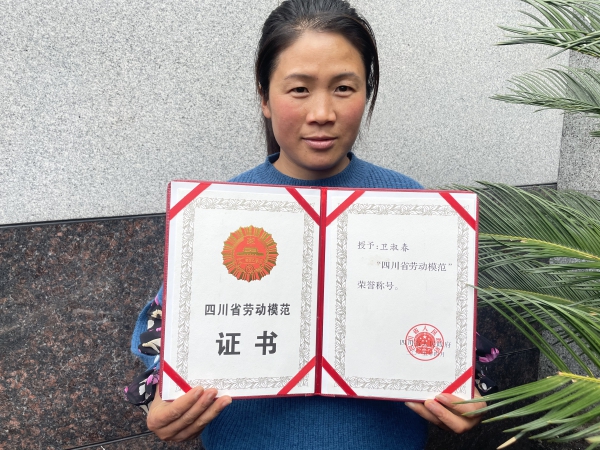 四川省劳动模范
证书
授予：卫淑春
“四川省劳动模范”
荣誉称号。